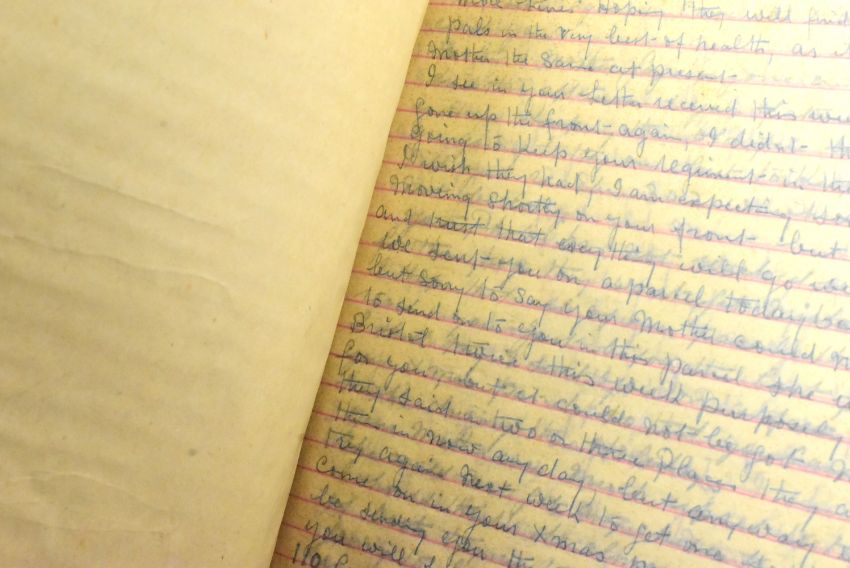 more lines hoping they will find
pals in the very best of health, as it
Mother the same at present
I see in your letter received this
gone up the front again, I didn't
going to keep your regiment in the
I wish they had, I am expecting
moving shortly on your front but
and trust that everything will go
We sent you on a parcel today
but sorry to say your Mother could
to send on to you in this parcel she
Bristol twice this week purposely
for you, but it could not be got
they said in two or three Places they
in now any day, but anyway
try again next week to get one
come on in your Xmas
be sending you
you will